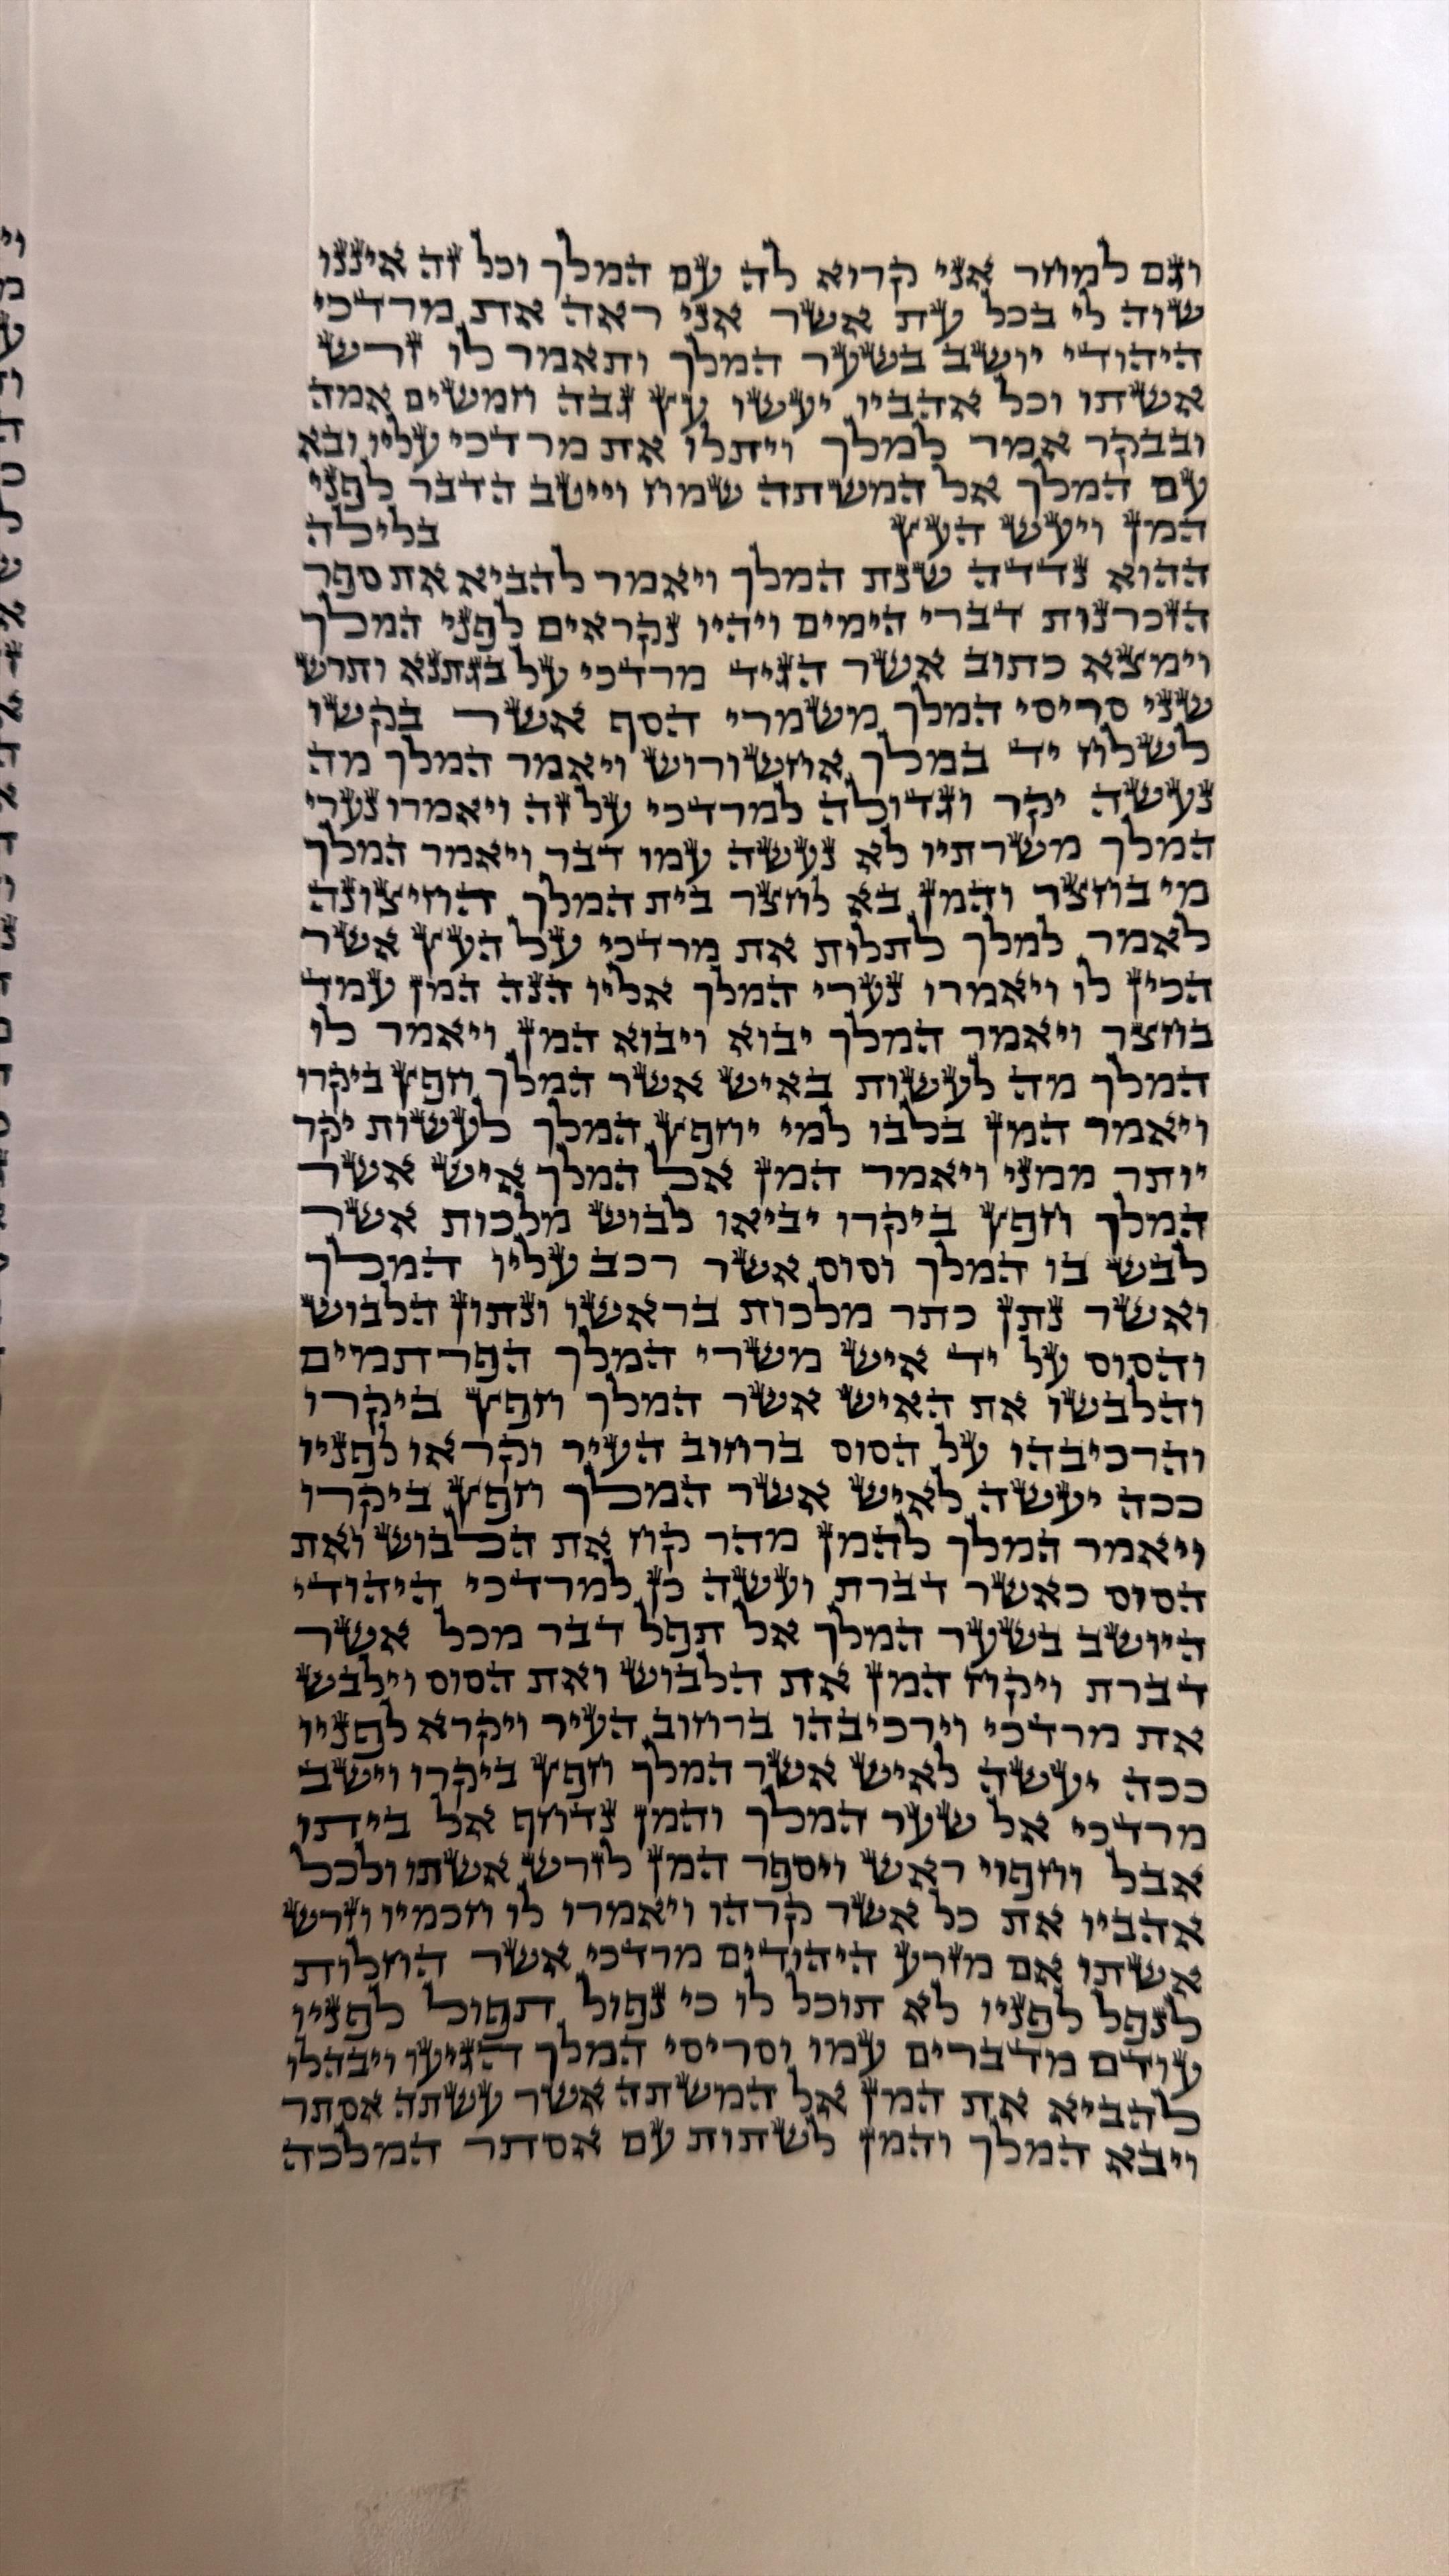 וגם למחר אני קרוא לה עם המלך וכל זה איננו
שוה לי בכל עת אשר אני ראה את מרדכי
היהודי יושב בשער המלך ותאמר לו זרש
אשתו וכל אהביו יעשו עץ גבה חמשים אמה
ובבקר אמר למלך ויתלו את מרדכי עליו ובא
עם המלך אל המשתה שמח וייטב הדבר לפני
המן ויעש העץ בלילה
ההוא נדדה שנת המלך ויאמר להביא את ספר
הזכרנות דברי הימים ויהיו נקראים לפני המלך
וימצא כתוב אשר הגיד מרדכי על בגתנא ותרש
שני סריסי המלך משמרי הסף אשר בקשו
לשלח יד במלך אחשורוש ויאמר המלך מה
נעשה יקר וגדולה למרדכי על זה ויאמרו נערי
המלך משרתיו לא נעשה עמו דבר ויאמר המלך
מי בחצר והמן בא לחצר בית המלך החיצונה
לאמר למלך לתלות את מרדכי על העץ אשר
הכין לו ויאמרו נערי המלך אליו הנה המן עמד
בחצר ויאמר המלך יבוא ויבוא המן ויאמר לו
המלך מה לעשות באיש אשר המלך חפץ ביקרו
ויאמר המן בלבו למי יחפץ המלך לעשות יקר
יותר ממני ויאמר המן אל המלך איש אשר
המלך חפץ ביקרו יביאו לבוש מלכות אשר
לבש בו המלך וסוס אשר רכב עליו המלך
ואשר נתן כתר מלכות בראשו ונתון הלבוש
והסוס על יד איש משרי המלך הפרתמים
והלבשו את האיש אשר המלך חפץ ביקרו
והרכיבהו על הסוס ברחוב העיר וקראו לפניו
ככה יעשה לאיש אשר המלך חפץ ביקרו
ויאמר המלך להמן מהר קח את הלבוש ואת
הסוס כאשר דברת ועשה כן למרדכי היהודי
היושב בשער המלך אל תפל דבר מכל אשר
דברת ויקח המן את הלבוש ואת הסוס וילבש
את מרדכי וירכיבהו ברחוב העיר ויקרא לפניו
ככה יעשה לאיש אשר המלך חפץ ביקרו וישב
מרדכי אל שער המלך והמן נדחף אל ביתו
אבל וחפוי ראש ויספר המן לזרש אשתו ולכל
אהביו את כל אשר קרהו ויאמרו לו חכמיו וזרש
אשתו אם מזרע היהודים מרדכי אשר החלות
לנפל לפניו לא תוכל לו כי נפול תפול לפניו
עודם מדברים עמו וסריסי המלך הגיעו ויבהלו
להביא את המן אל המשתה אשר עשתה אסתר
ויבא המלך והמן לשתות עם אסתר המלכה